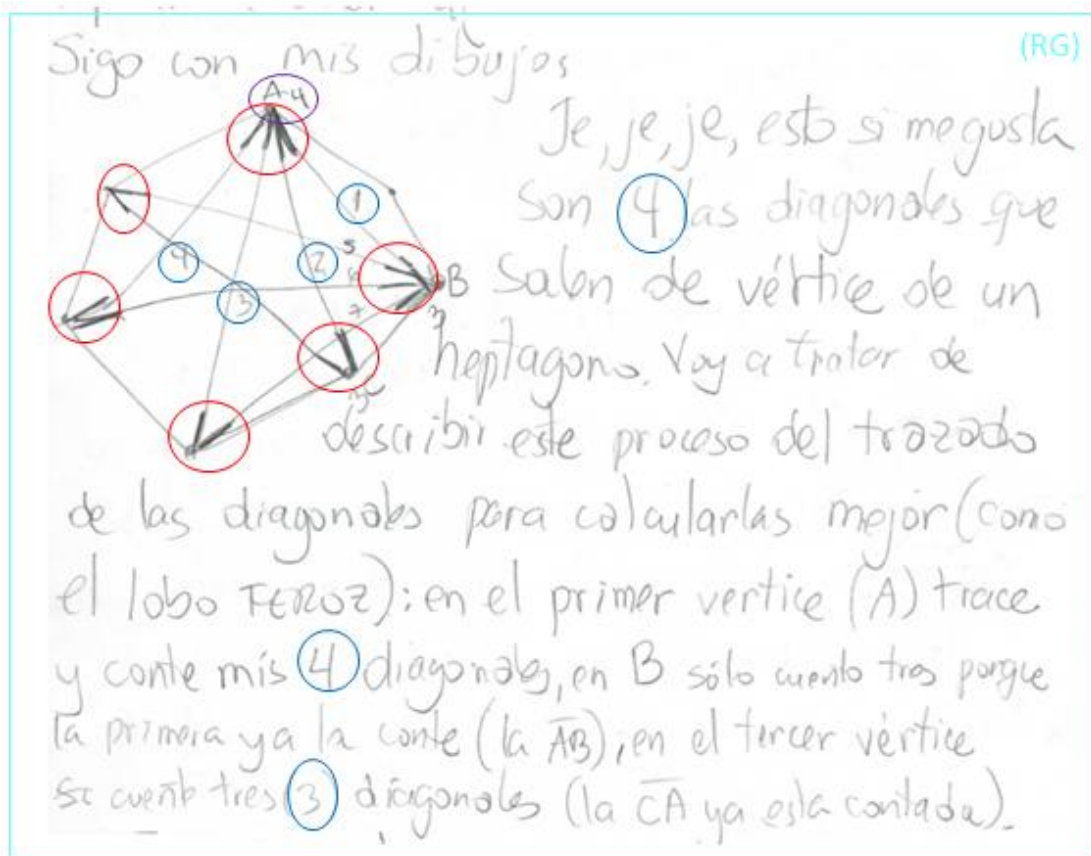 Sigo con mis dibujos
(RG)
A-4
1
2
3
4
5
7
B
3
Je, je, je, esto si me gusta
son 4 las diagonales que
salen de vértice de un
heptagono. Voy a tratar de
describir este proceso del trazado
de las diagonales para calcularlas mejor (como
el lobo FEROZ): en el primer vertice (A) trace
y conte mis 4 diagonales, en B sólo cuento tres porque
la primera ya la conte (la AB), en el tercer vértice
si cuento tres 3 diagonales (la CA ya esta contada).